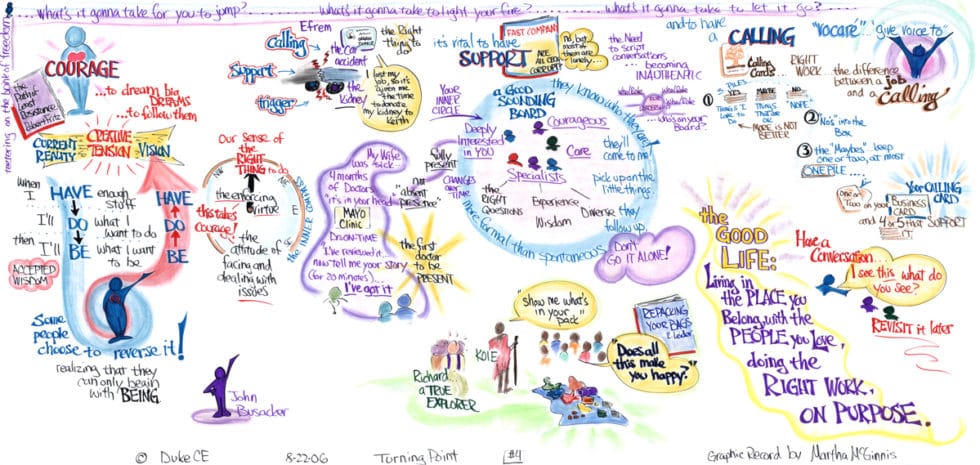 ...What's it gonna take for you to jump?
...what's it gonna take to light your fire?
...what's it gonna take to let it go?
COURAGE
the Path of Least Resistance
Robert Fritz
...to dream big
DREAMS
...to follow them
CURRENT REALITY
CREATIVE TENSION
VISION
When I
HAVE
enough stuff
I'll
DO
what I want to do
then I'll
BE
what I want to be
HAVE
DO
BE
ACCEPTED WISDOM
Some people choose to reverse it!
realizing that they can only begin with BEING
John Busacker
Efrem
Calling
the car accident
Support
trigger
the kidney
the Right Thing to do
I lost my job, so it's given me the time to donate my kidney to Keith
Our Sense of the RIGHT THING to do
NE
E
the enforcing virtue
this takes courage!
...the attitude of facing and dealing with issues
the INNER COMPASS
My Wife was sick...
4 months of Doctors
"it's in your head"
MAYO Clinic
Dr. ON-TIME
I've reviewed it...
now tell me your story
(for 20 minutes)...
I've got it
fully present
not "absent presence"
the first doctor to be PRESENT
it's vital to have
SUPPORT
FAST COMPANY
ARE ALL CEOs CORRUPT?
No, but most of them are lonely...
the Need to Script conversations
...becoming INAUTHENTIC
...who's on your Board?
YOUR INNER CIRCLE
CHANGES OVER TIME
a GOOD SOUNDING BOARD
they know who they are
Deeply Interested in YOU
Courageous
Care
they'll come to me
Specialists
pick up on the little things
the RIGHT QUESTIONS
Experience
Wisdom
Diverse
they follow up
more formal than spontaneous
Don't GO IT ALONE!
"show me what's in your pack"
KOLE
Richard... a TRUE EXPLORER
REPACKING YOUR BAGS
Leider
"Does all this make you happy?"
and to have a
CALLING
"VOCARE"... "give voice to"
Calling Cards...
RIGHT WORK...
the difference between a job and a calling
①
3 PILES
YES
Things I Love to Do
MAYBE
Things that are OK
NO
"NOPE"
MORE IS NOT BETTER
②
NO's into the Box
③
the "Maybes"... keep one or two, at most
ONE PILE...
One or Two on your BUSINESS CARD
Your CALLING CARD
and 4 or 5 that SUPPORT IT
the GOOD LIFE:
Living in the PLACE you Belong, with the PEOPLE you Love, doing the RIGHT WORK, ON PURPOSE.
Have a Conversation...
I see this what do you see?
REVISIT it later
© Duke CE
8-22-06
Turning Point
#4
Graphic Record by Martha McGinnis